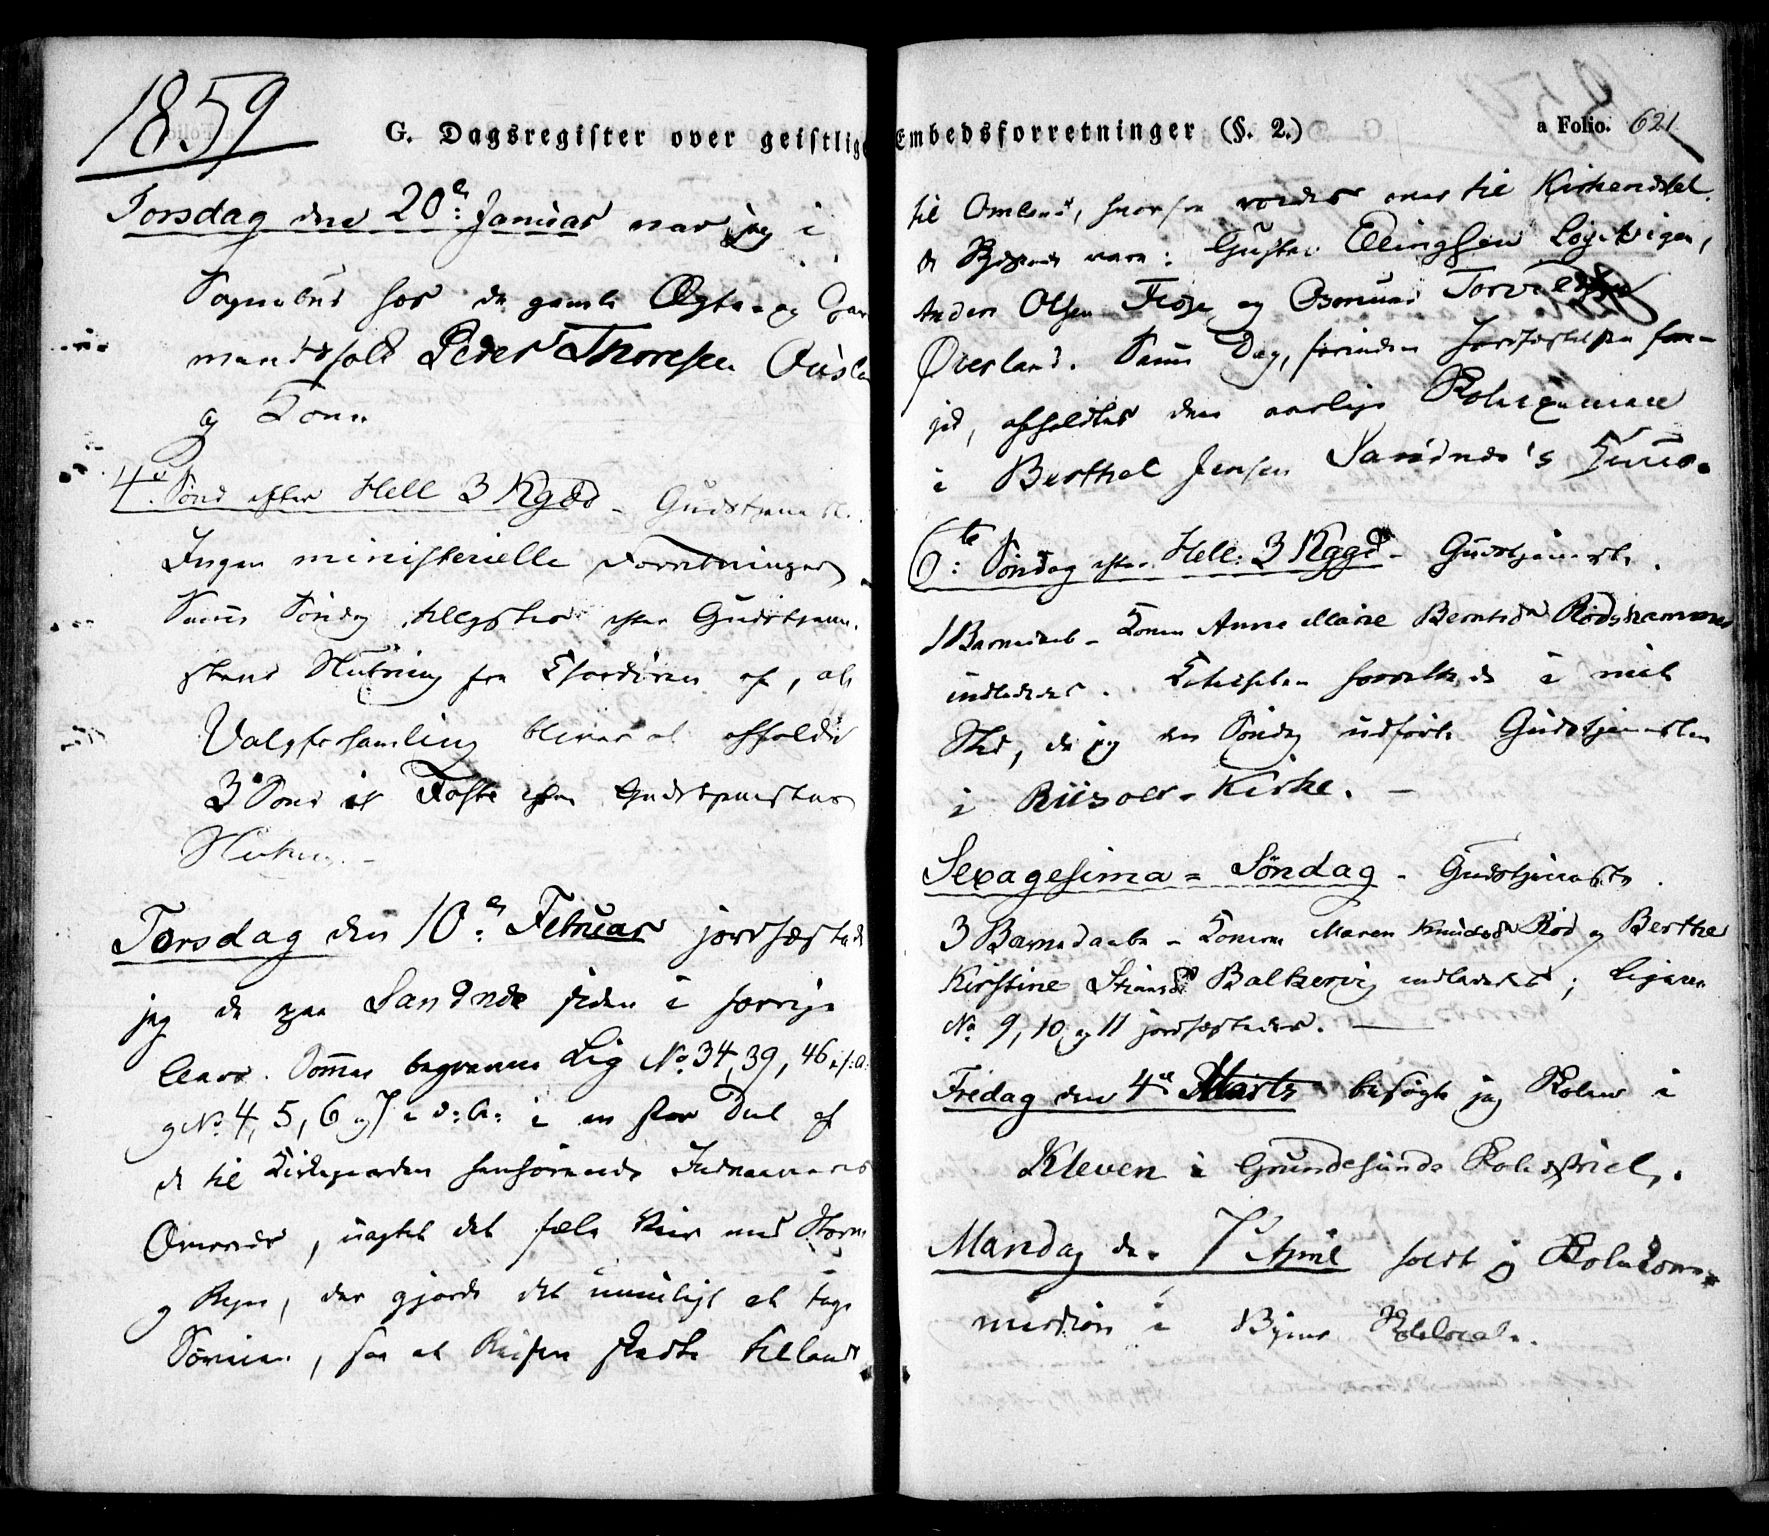 1859
G. Dagsregister over geistlige Embedsforretninger (§. 2.)
a Folio. 621
Torsdag den 20de Januar var jeg i
Sognebud hos de gamle Ægte- og Gar
mandsfolk Peder Thoresen Ausla
og Kone
4de Sønd efter Hell 3 Kgsd - Gudstjeneste.
Ingen ministerielle Forretninger
Samme Søndag efter Gudstjene-
stens Slutning fra Chordøren af, at
Valgforsamling bliver at afholde
3de Sønd i Faste efter Gudstjenestens
Slutn.
Torsdag den 10de Februar jordfæstede
jeg de paa Sandnæs siden i forrige
Aars Sommer begravne Lig No. 34, 39, 46 i f: A:
og No. 4, 5, 6 og 7 i d: A: i en stor Deel af
de til Kirkegaarden henhørende Indvaaneres
Overvær, uagtet det fæle Veir med Storm
og Regn, der gjorde det umuligt at tage
Søveien, saa at Reisen skedte tillands
til Omland, hvorfra roedes over til Kirkenæsset.
De Rejsende vare: Gustav Ellingsen Løgtvigen,
Anders Olsen Fiose og Osmund Torvildsen
Øverland. Samme Dag, forinden Jordfæstelsen fore-
gik, afholdtes den aarlige Skoleexamen
i Berthel Jensen Sandnæs's Huus.
6te Søndag efter Hell. 3 Kggd - Gudstjeneste.
1 Barnedaab - Konen Anne Marie Berntsd. Rødshammer
indledet. Kateketen forrettede i mit
Sted, da jeg den Søndag udførte Gudstjenesten
i Riisøer-Kirke. -
Sexagesima = Søndag - Gudstjeneste.
3 Barnedaabe - Konerne Maren Knudsd. Rød og Berthe
Kirstine Stiansd. Balkervig indledet; Ligene
No. 9, 10 og 11 jordfæstedes. -
Fredag den 4de Marts besøgte jeg Skolen i
Kleven i Grundesunds Skoledistrict.
Mandag den 7de April holdt jeg Skolekom-
mission i Byens Skolelocale.